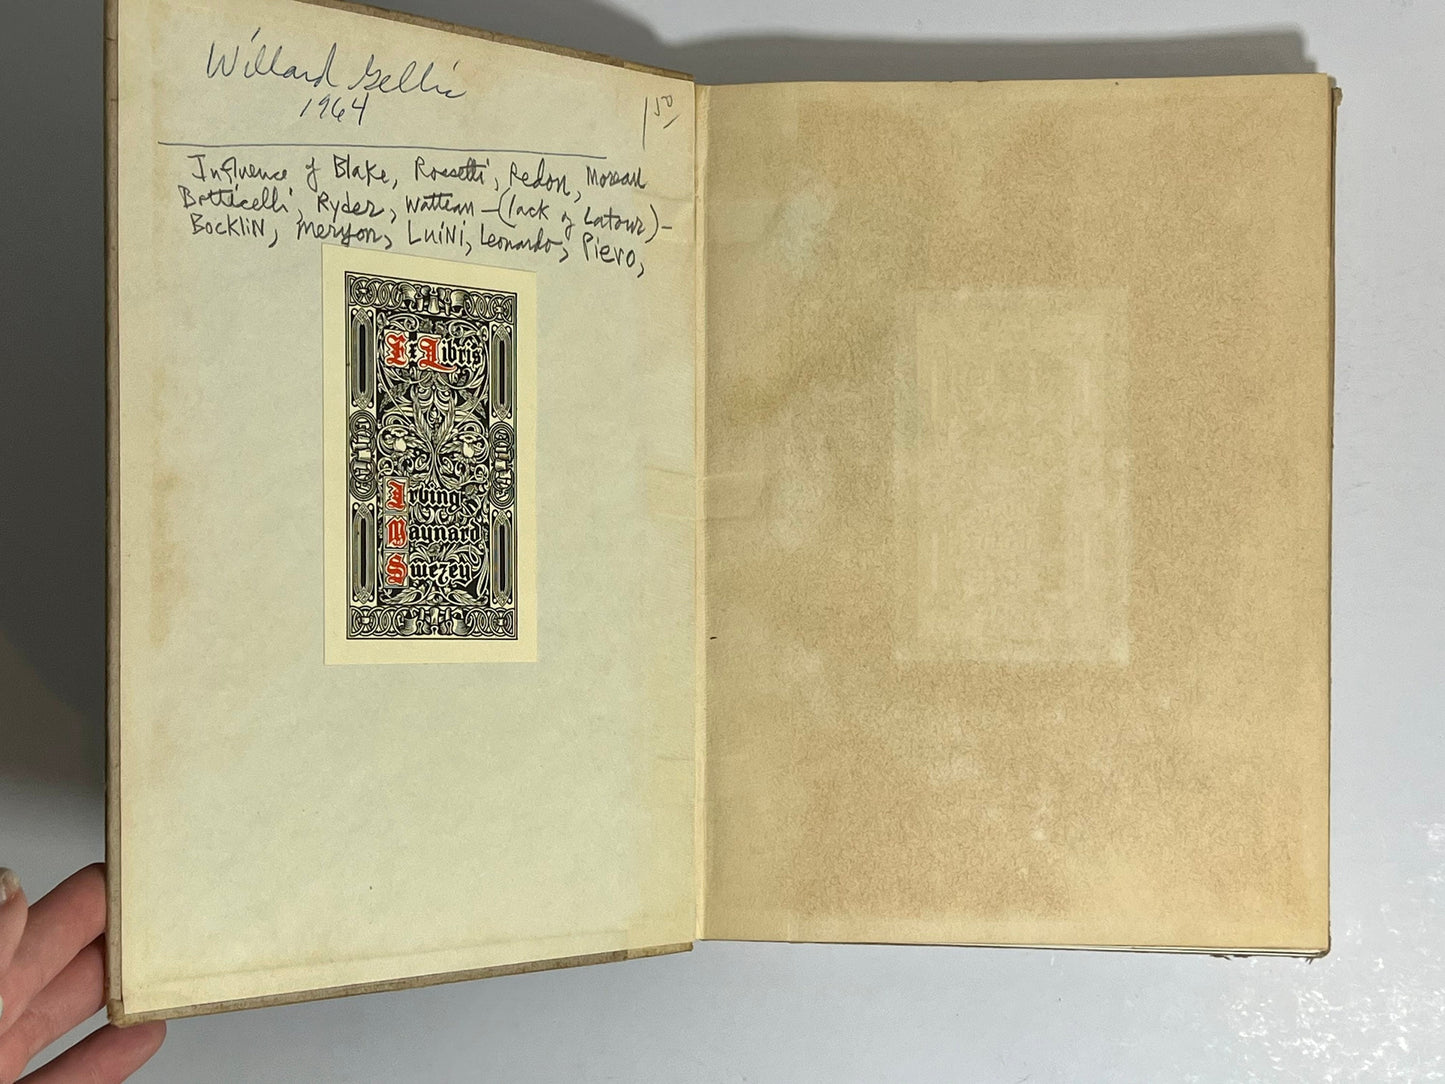 Willard Gellis
1964
1 50
Influence of Blake, Rossetti, Redon, Moreau
Botticelli, Ryder, Watteau – (lack of Latour) –
Bocklin, Meryon, Luini, Leonardo, Piero,
Ex Libris
Irving
Maynard
Swezey